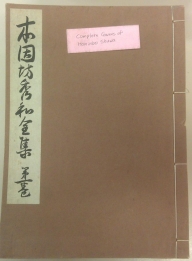 本因坊秀和全集 第壱巻
Complete Games of
Honinbo Shuwa